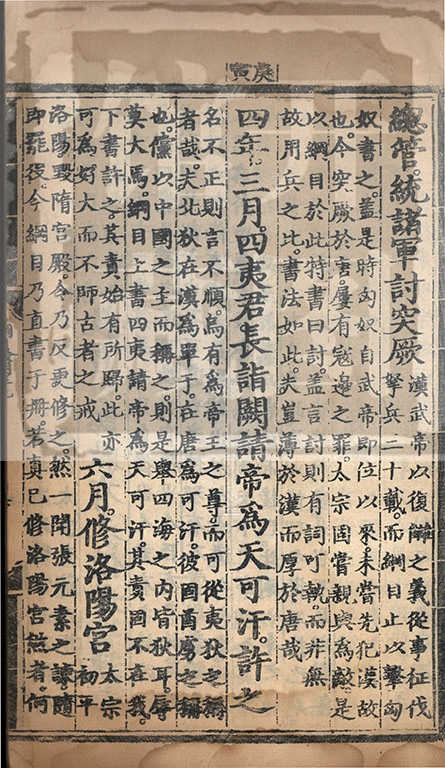 庚寅
總管。統諸軍討突厥
漢武帝以復讎之義從事征伐
拏兵三十載。而綱目止以擊匈
奴書之。蓋是時匈奴自武帝即位以來。未嘗先犯漢故
也。今突厥於唐。屢有寇邊之罪。太宗固嘗親與為敵。是
以綱目於此特書曰討。蓋言討則有詞可執。而非無
故用兵之比。書法如此。夫豈薄於漢而厚於唐哉
四年。三月。四夷君長詣闕請帝爲天可汗。許之
名不正則言不順。焉有爲帝王之尊。而可從夷狄之稱
者哉。夫北狄在漢爲單于。在唐爲可汗。彼固酋虜之稱
也。儻以中國之王而稱之。則是舉四海之内皆狄耳。辱
莫大焉。綱目上書四夷請帝爲天可汗。其責固不在我。
下書許之。其責始有所歸。此亦
可爲好大而不師古者之戒
六月。修洛陽宮
太宗
初平
洛陽毀隋宮殿。今乃反更修之。然一聞張元素之諫。隨
即罷役。今綱目乃直書于冊。若真已修洛陽宮然者。何